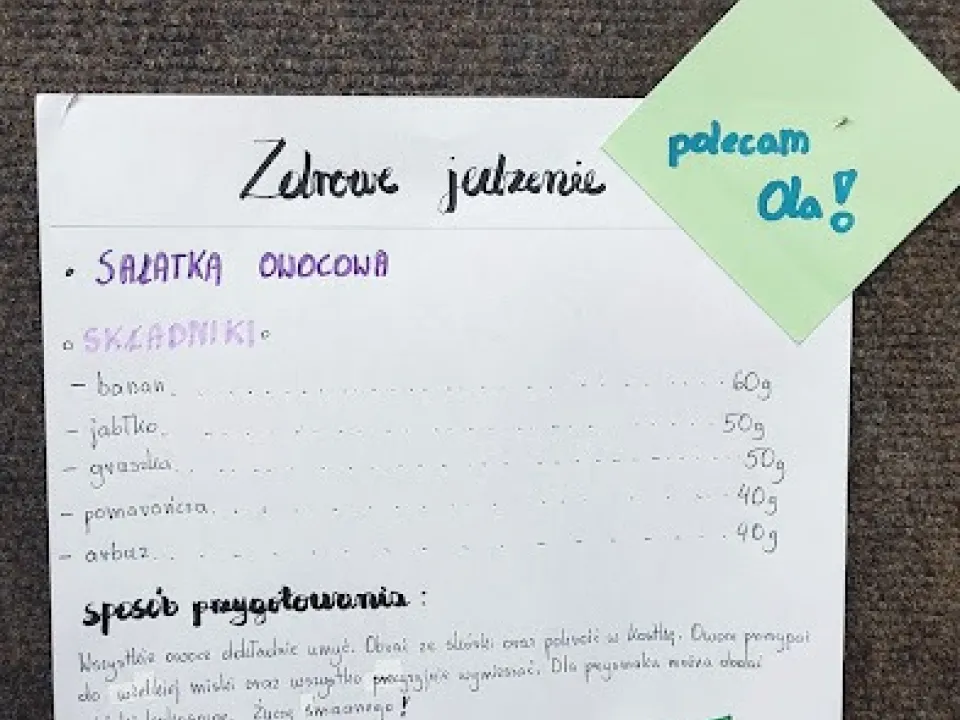 Zdrowe jedzenie
polecam
Ola!
• SAŁATKA OWOCOWA
○ SKŁADNIKI ○
- banan. . . . . . . . . . . . . . . . . . . . 60g
- jabłko. . . . . . . . . . . . . . . . . . . . 50g
- gruszka. . . . . . . . . . . . . . . . . . . . 50g
- pomarańcza. . . . . . . . . . . . . . . . . . 40g
- arbuz. . . . . . . . . . . . . . . . . . . . 40g
sposób przygotowania :
Wszystkie owoce dokładnie umyć. Obrać ze skórki oraz pokroić w kostkę. Owoce przesypać
do wielkiej miski oraz wszystko precyzyjnie wymieszać. Dla przysmaku można dodać
Życzę smacznego!